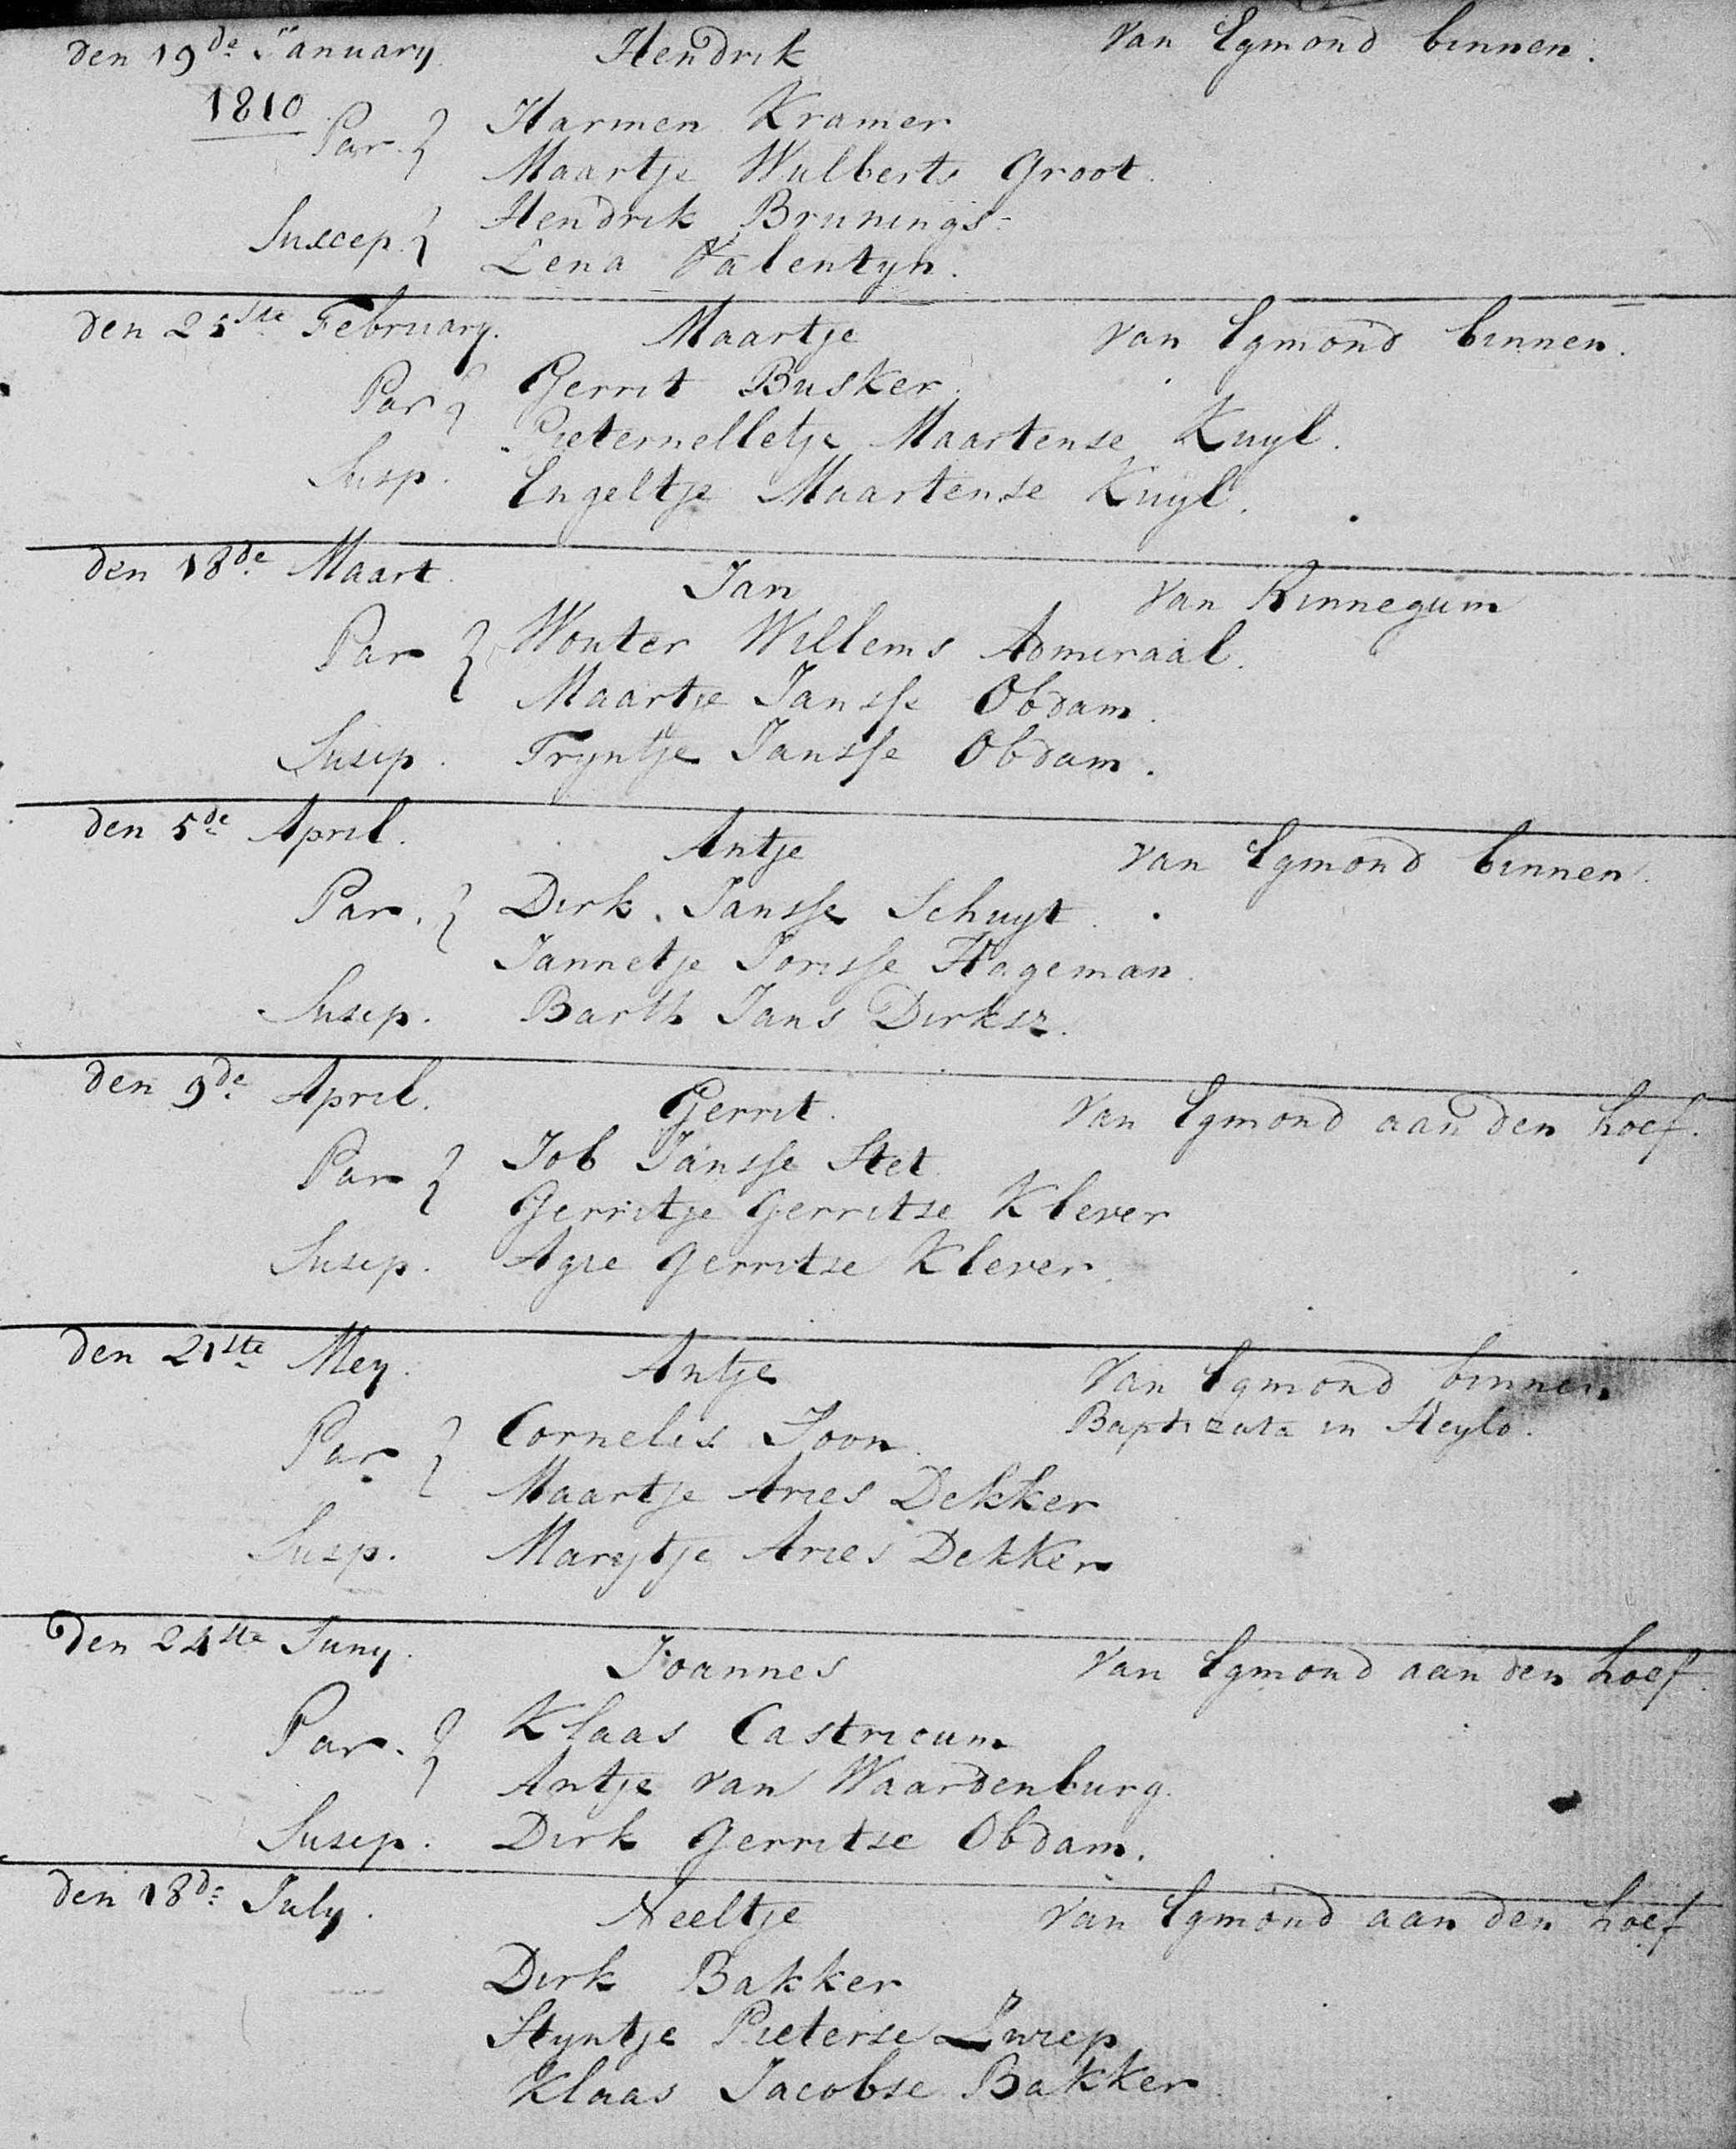 den 19de January. Hendrik Van Egmond binnen.
1810
Par. { Harmen Kramer
Maartje Wulberts Groot.
Suscep. { Hendrik Brunings
Lena Valentyn.
den 25ste February. Maartje van Egmond binnen.
Par { Gerrit Busker.
Pieternelletje Maartense Kuyl.
Susp. Engeltje Maartense Kuyl.
den 18de Maart. Jan Van Rinnegum
Par { Wouter Willems Admiraal.
Maartje Jansse Obdam.
Suscp. Tryntje Jansse Obdam.
den 5de April. Antje van Egmond binnen.
Par. { Dirk Jansse Schuyt.
Jannetje Jorisse Hageman.
Suscp. Barth Jans Dirksz.
den 9de April. Gerrit. Van Egmond aan den hoef.
Par { Job Jansse Stet
Gerritje Gerritse Klever
Suscp. Agie Gerritse Klever.
den 21ste Mey. Antje Van Egmond binnen
Baptizata in Heylo.
Par { Cornelis Joon.
Maartje Aries Dekker
Susp. Marytje Aries Dekker
Den 24ste Juny. Joannes Van Egmond aan den hoef.
Par. { Klaas Castricum
Antje van Waardenburg.
Suscp. Dirk Gerritse Obdam.
den 18de July. Neeltje Van Egmond aan den hoef
Dirk Bakker
Styntje Pieterse Zwiep
Klaas Jacobse Bakker